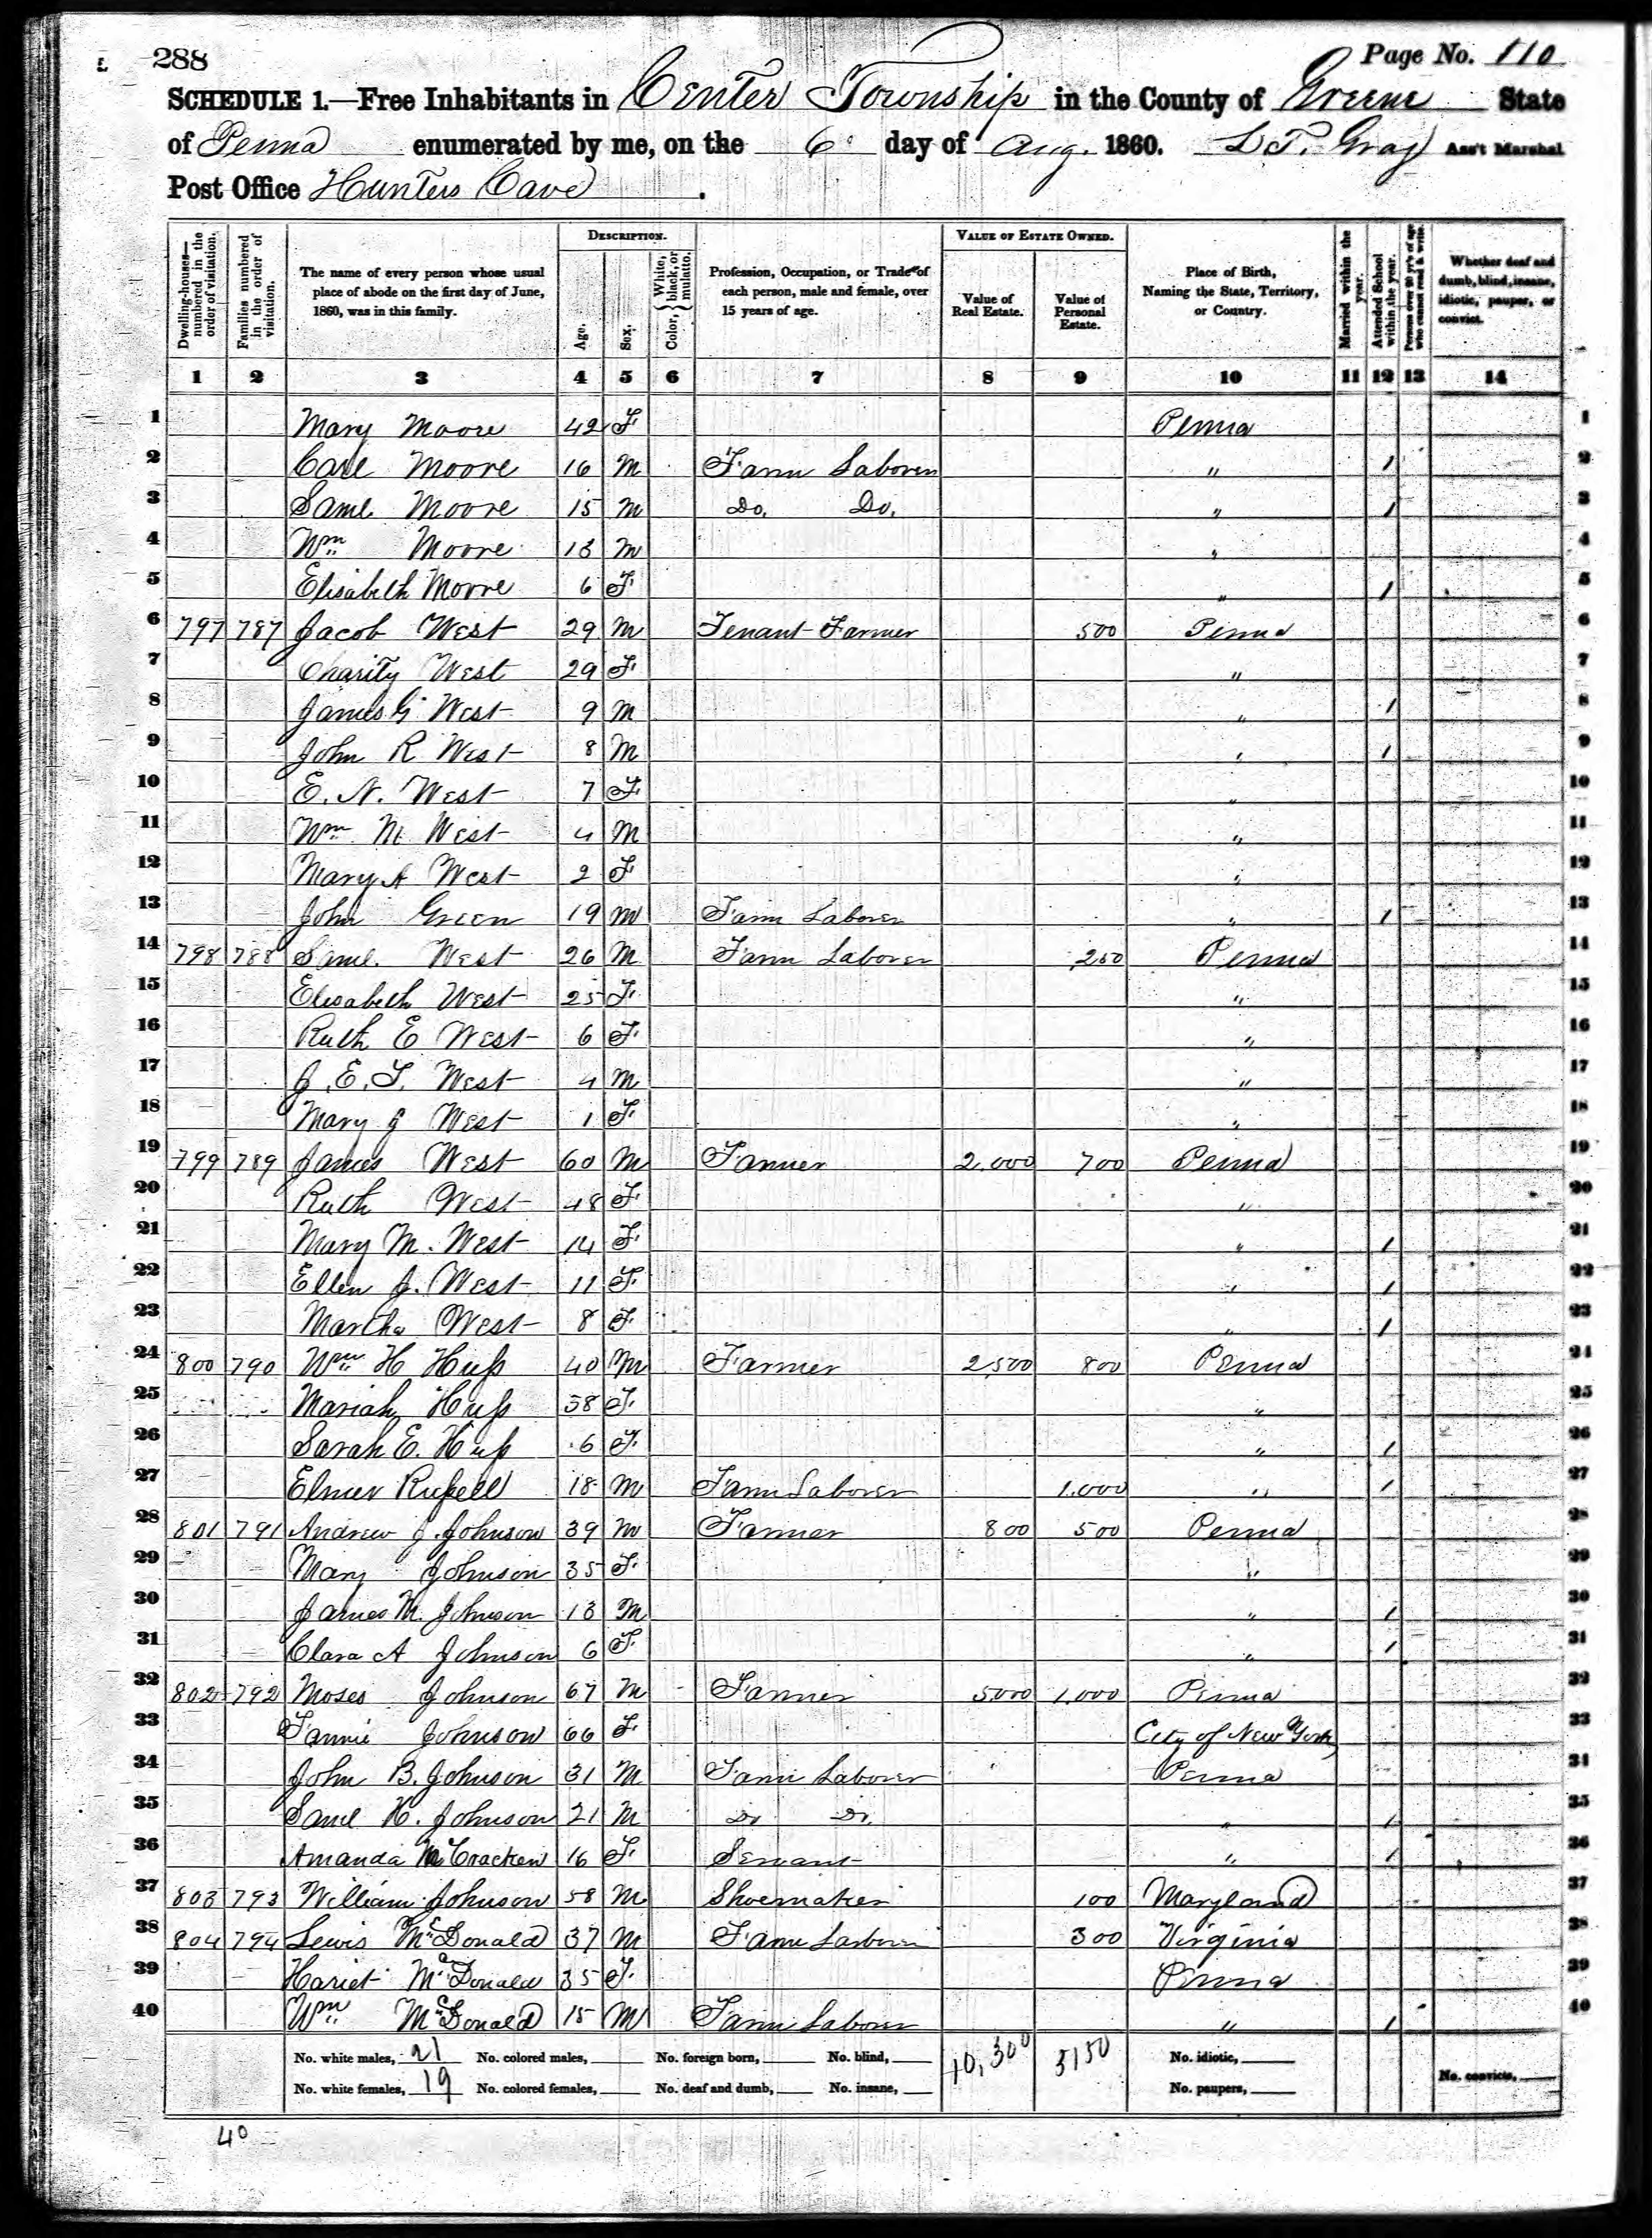 288 Page No. 110
SCHEDULE 1.—Free Inhabitants in Center Township in the County of Greene State
of Penna enumerated by me, on the 6 day of Aug. 1860. Ass't Marshal
Post Office Hunters Cave
Dwelling-houses—numbered in the order of visitation. Families numbered in the order of visitation. The name of every person whose usual place of abode on the first day of June, 1860, was in this family. DESCRIPTION. Age. Sex. Color, { White, black, or mulatto. Profession, Occupation, or Trade of each person, male and female, over 15 years of age. VALUE OF ESTATE OWNED. Value of Real Estate. Value of Personal Estate. Place of Birth, Naming the State, Territory, or Country. Married within the year. Attended School within the year. Persons over 20 y'rs of age who cannot read & write. Whether deaf and dumb, blind, insane, idiotic, pauper, or convict.
1 2 3 4 5 6 7 8 9 10 11 12 13 14
1 Mary Moore 42 F Penna 1
2 Moore 16 M Farm Laborer " / 2
3 Saml. Moore 15 M Do. Do. " / 3
4 Wm Moore 13 M " 4
5 Elisabeth Moore 6 F " / 5
6 797 787 Jacob West 29 M Tenant Farmer 500 Penna 6
7 Charity West 29 F " 7
8 James G West 9 M " / 8
9 John R West 8 M " / 9
10 E. N. West 7 F " 10
11 Wm M West 4 M " 11
12 Mary A West 2 F " 12
13 John Green 19 M Farm Laborer " / 13
14 798 788 Saml. West 26 M Farm Laborer 250 Penna 14
15 Elisabeth West 25 F " 15
16 Ruth E West 6 F " 16
17 J. E. T. West 4 M " 17
18 Mary J West 1 F " 18
19 799 789 James West 60 M Farmer 2.000 700 Penna 19
20 Ruth West 48 F " 20
21 Mary M. West 14 F " / 21
22 Ellen J. West 11 F " / 22
23 Martha West 8 F " / 23
24 800 790 Wm H Huss 40 M Farmer 2,500 800 Penna 24
25 Mariah Huss 38 F " 25
26 Sarah E. Huss 6 F " / 26
27 Elmer Russell 18 M Farm Laborer 1.000 " / 27
28 801 791 Andrew J. Johnson 39 M Farmer 800 500 Penna 28
29 Mary Johnson 35 F " 29
30 James M. Johnson 13 M " / 30
31 Clara A Johnson 6 F " / 31
32 802 792 Moses Johnson 67 M Farmer 5000 1,000 Penna 32
33 Fannie Johnson 66 F City of New York 33
34 John B. Johnson 31 M Farm Laborer Penna 34
35 Saml H. Johnson 21 M Do Do. " / 35
36 Amanda McCracken 16 F Servant " / 36
37 803 793 William Johnson 58 M Shoemaker 100 Maryland 37
38 804 794 Lewis McDonald 37 M Farm Laborer 300 Virginia 38
39 Hariet McDonald 35 F Penna 39
40 Wm McDonald 15 M Farm Laborer " / 40
No. white males, 21 No. colored males, No. foreign born, No. blind, 10,300 5150 No. idiotic,
No. white females, 19 No. colored females, No. deaf and dumb, No. insane, No. paupers, No. convicts,
40